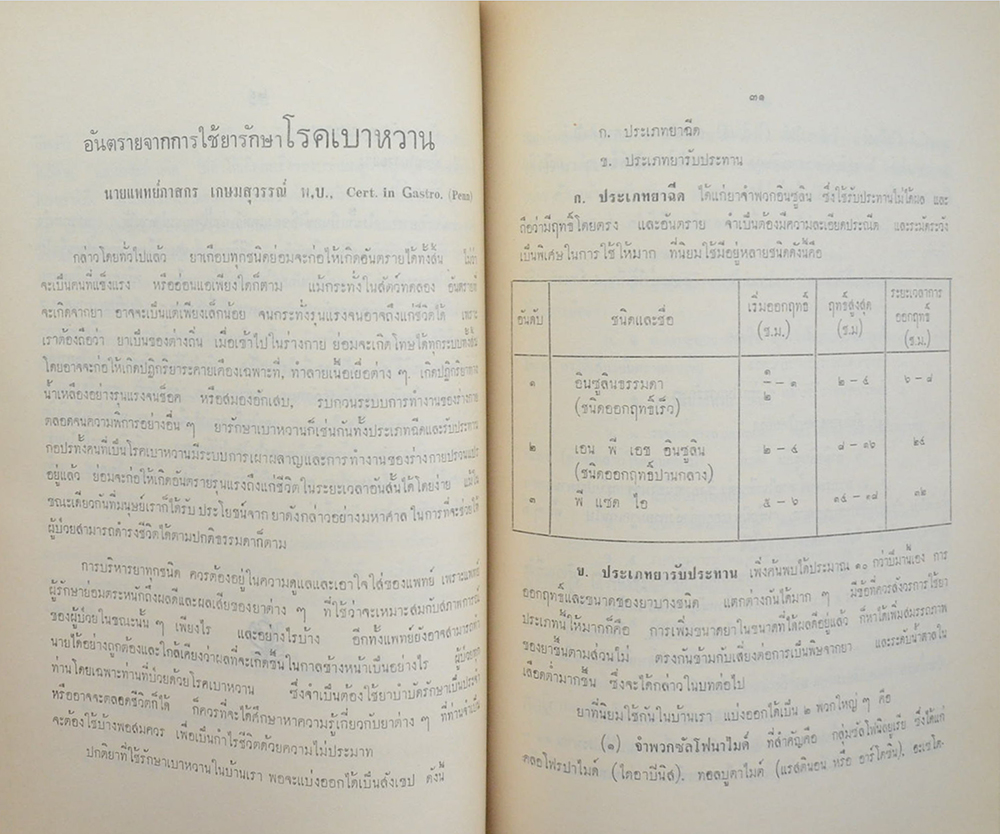 อันตรายจากการใช้ยารักษาโรคเบาหวาน
นายแพทย์ภาสกร เกษมสุวรรณ์ พ.บ., Cert. in Gastro. (Penn)
กล่าวโดยทั่วไปแล้ว ยาเกือบทุกชนิดย่อมจะก่อให้เกิดอันตรายได้ทั้งสิ้น ไม่ว่า
จะเป็นคนที่แข็งแรง หรืออ่อนแอเพียงใดก็ตาม แม้กระทั่งในสัตว์ทดลอง อันตรายที่
จะเกิดจากยา อาจจะเป็นแต่เพียงเล็กน้อย จนกระทั่งรุนแรงจนอาจถึงแก่ชีวิตได้ เพราะ
เราต้องถือว่า ยาเป็นของต่างถิ่น เมื่อเข้าไปในร่างกาย ย่อมจะเกิดโทษได้ทุกระบบทั้งสิ้น
โดยอาจจะก่อให้เกิดปฏิกิริยาระคายเคืองเฉพาะที่, ทำลายเนื้อเยื่อต่าง ๆ, เกิดปฏิกิริยาทาง
น้ำเหลืองอย่างรุนแรงจนช็อค หรือสมองอักเสบ, รบกวนระบบการทำงานของร่างกาย
ตลอดจนความพิการอย่างอื่น ๆ ยารักษาเบาหวานก็เช่นกันทั้งประเภทฉีดและรับประทาน
กอปรทั้งคนที่เป็นโรคเบาหวานมีระบบการเผาผลาญและการทำงานของร่างกายปรวนแปร
อยู่แล้ว ย่อมจะก่อให้เกิดอันตรายรุนแรงถึงแก่ชีวิตในระยะเวลาอันสั้นได้โดยง่าย แม้ใน
ขณะเดียวกันที่มนุษย์เราก็ได้รับ ประโยชน์จาก ยาดังกล่าวอย่างมหาศาล ในการที่จะช่วยให้
ผู้ป่วยสามารถดำรงชีวิตได้ตามปกติธรรมดาก็ตาม
การบริหารยาทุกชนิด ควรต้องอยู่ในความดูแลและเอาใจใส่ของแพทย์ เพราะแพทย์
ผู้รักษาย่อมตระหนักถึงผลดีและผลเสียของยาต่าง ๆ ที่ใช้ว่าจะเหมาะสมกับสภาพการณ์
ของผู้ป่วยในขณะนั้น ๆ เพียงไร และอย่างไรบ้าง อีกทั้งแพทย์ยังอาจสามารถทำ
นายได้อย่างถูกต้องและใกล้เคียงว่าผลที่จะเกิดขึ้นในกาลข้างหน้าเป็นอย่างไร ผู้ป่วยทุก
ท่านโดยเฉพาะท่านที่ป่วยด้วยโรคเบาหวาน ซึ่งจำเป็นต้องใช้ยาบำบัดรักษาเป็นประจำ
หรืออาจจะตลอดชีวิตก็ได้ ก็ควรที่จะได้ศึกษาหาความรู้เกี่ยวกับยาต่าง ๆ ที่ท่านจำเป็น
จะต้องใช้บ้างพอสมควร เพื่อเป็นกำไรชีวิตด้วยความไม่ประมาท
ปกติยาที่ใช้รักษาเบาหวานในบ้านเรา พอจะแบ่งออกได้เป็นสังเขป ดังนี้
๓๑
ก. ประเภทยาฉีด
ข. ประเภทยารับประทาน
ก. ประเภทยาฉีด ได้แก่ยาจำพวกอินซูลิน ซึ่งใช้รับประทานไม่ได้ผล และ
ถือว่ามีฤทธิ์โดยตรง และอันตราย จำเป็นต้องมีความละเอียดประณีต และระมัดระวัง
เป็นพิเศษในการใช้ให้มาก ที่นิยมใช้มีอยู่หลายชนิดดังนี้คือ
อันดับ ชนิดและชื่อ เริ่มออกฤทธิ์ (ช.ม.) ฤทธิ์สูงสุด (ช.ม) ระยะเวลาการออกฤทธิ์ (ช.ม.)
๑ อินซูลินธรรมดา ๑/๒ – ๑ ๒ – ๔ ๖ – ๘
(ชนิดออกฤทธิ์เร็ว)
๒ เอน พี เอช อินซูลิน ๒ – ๔ ๘ – ๑๖ ๒๔
(ชนิดออกฤทธิ์ปานกลาง)
๓ พี แซด ไอ ๕ – ๖ ๑๔ – ๑๘ ๑๒
ข. ประเภทยารับประทาน เพิ่งค้นพบได้ประมาณ ๑๐ กว่าปีมานี้เอง การ
ออกฤทธิ์และขนาดของยาบางชนิด แตกต่างกันได้มาก ๆ มีข้อที่ควรสังวรการใช้ยา
ประเภทนี้ให้มากก็คือ การเพิ่มขนาดยาในขนาดที่ได้ผลดีอยู่แล้ว ก็หาได้เพิ่มสมรรถภาพ
ของยาขึ้นตามส่วนไม่ ตรงกันข้ามกับเสี่ยงต่อการเป็นพิษจากยา และระดับน้ำตาลใน
เลือดต่ำมากขึ้น ซึ่งจะได้กล่าวในบทต่อไป
ยาที่นิยมใช้กันในบ้านเรา แบ่งออกได้เป็น ๒ พวกใหญ่ ๆ คือ
(๑) จำพวกซัลโฟนาไมด์ ที่สำคัญคือ กลุ่มซัลโฟนิลยูเรีย ซึ่งได้แก่
คลอโฟรปาไมด์ (ไดอาบีนิส), ทอลบูตาไมด์ (แรสตินอน หรือ อาร์โตซิน), อะเซโต-